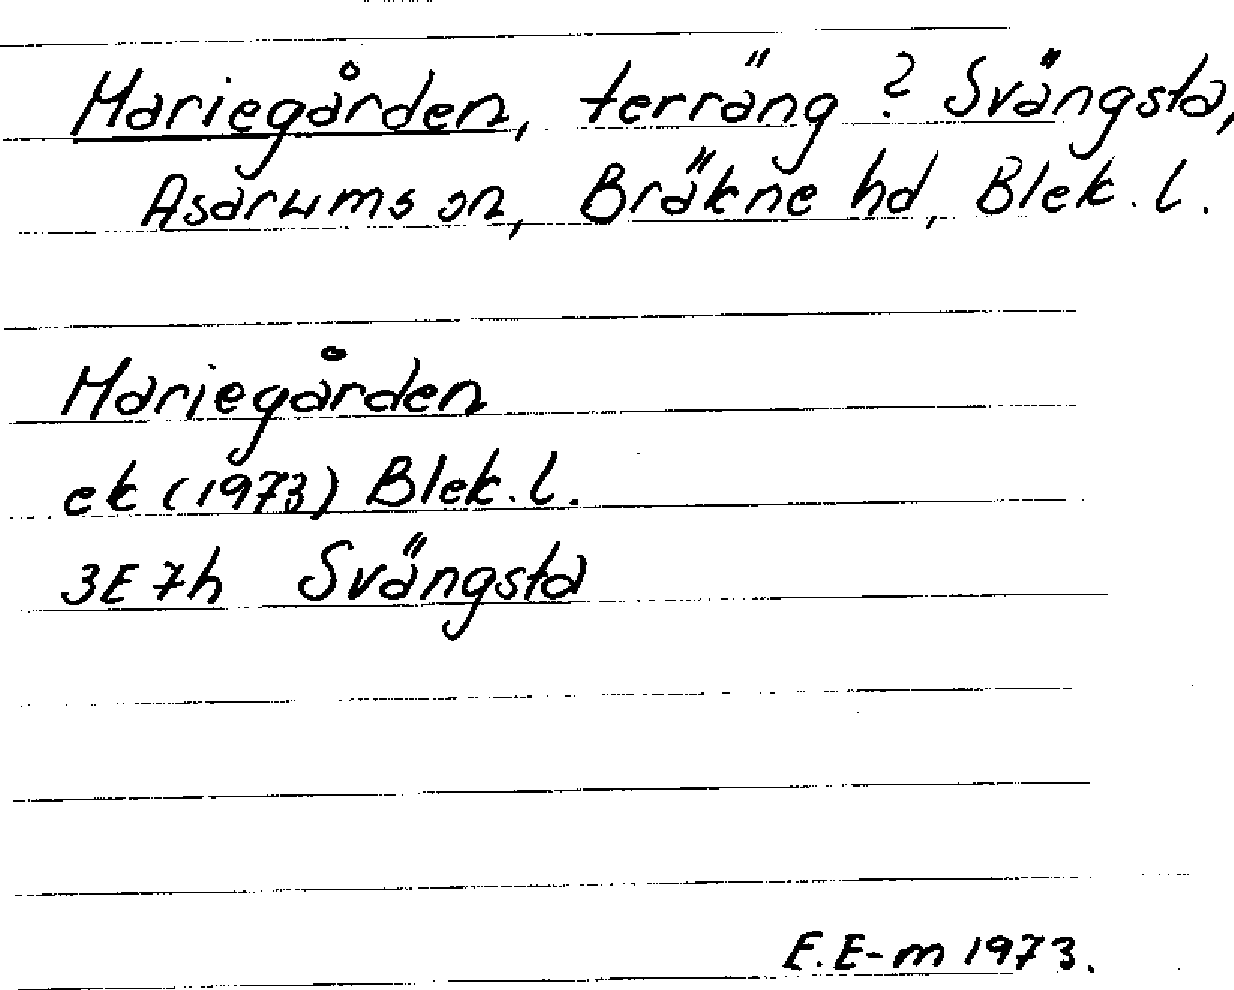 Mariegården, terräng? Svängsta,
Asarums sn, Bräkne hd, Blek. l.
Mariegården
ek (1973) Blek. l.
3E 7h Svängsta
E. E-m 1973.